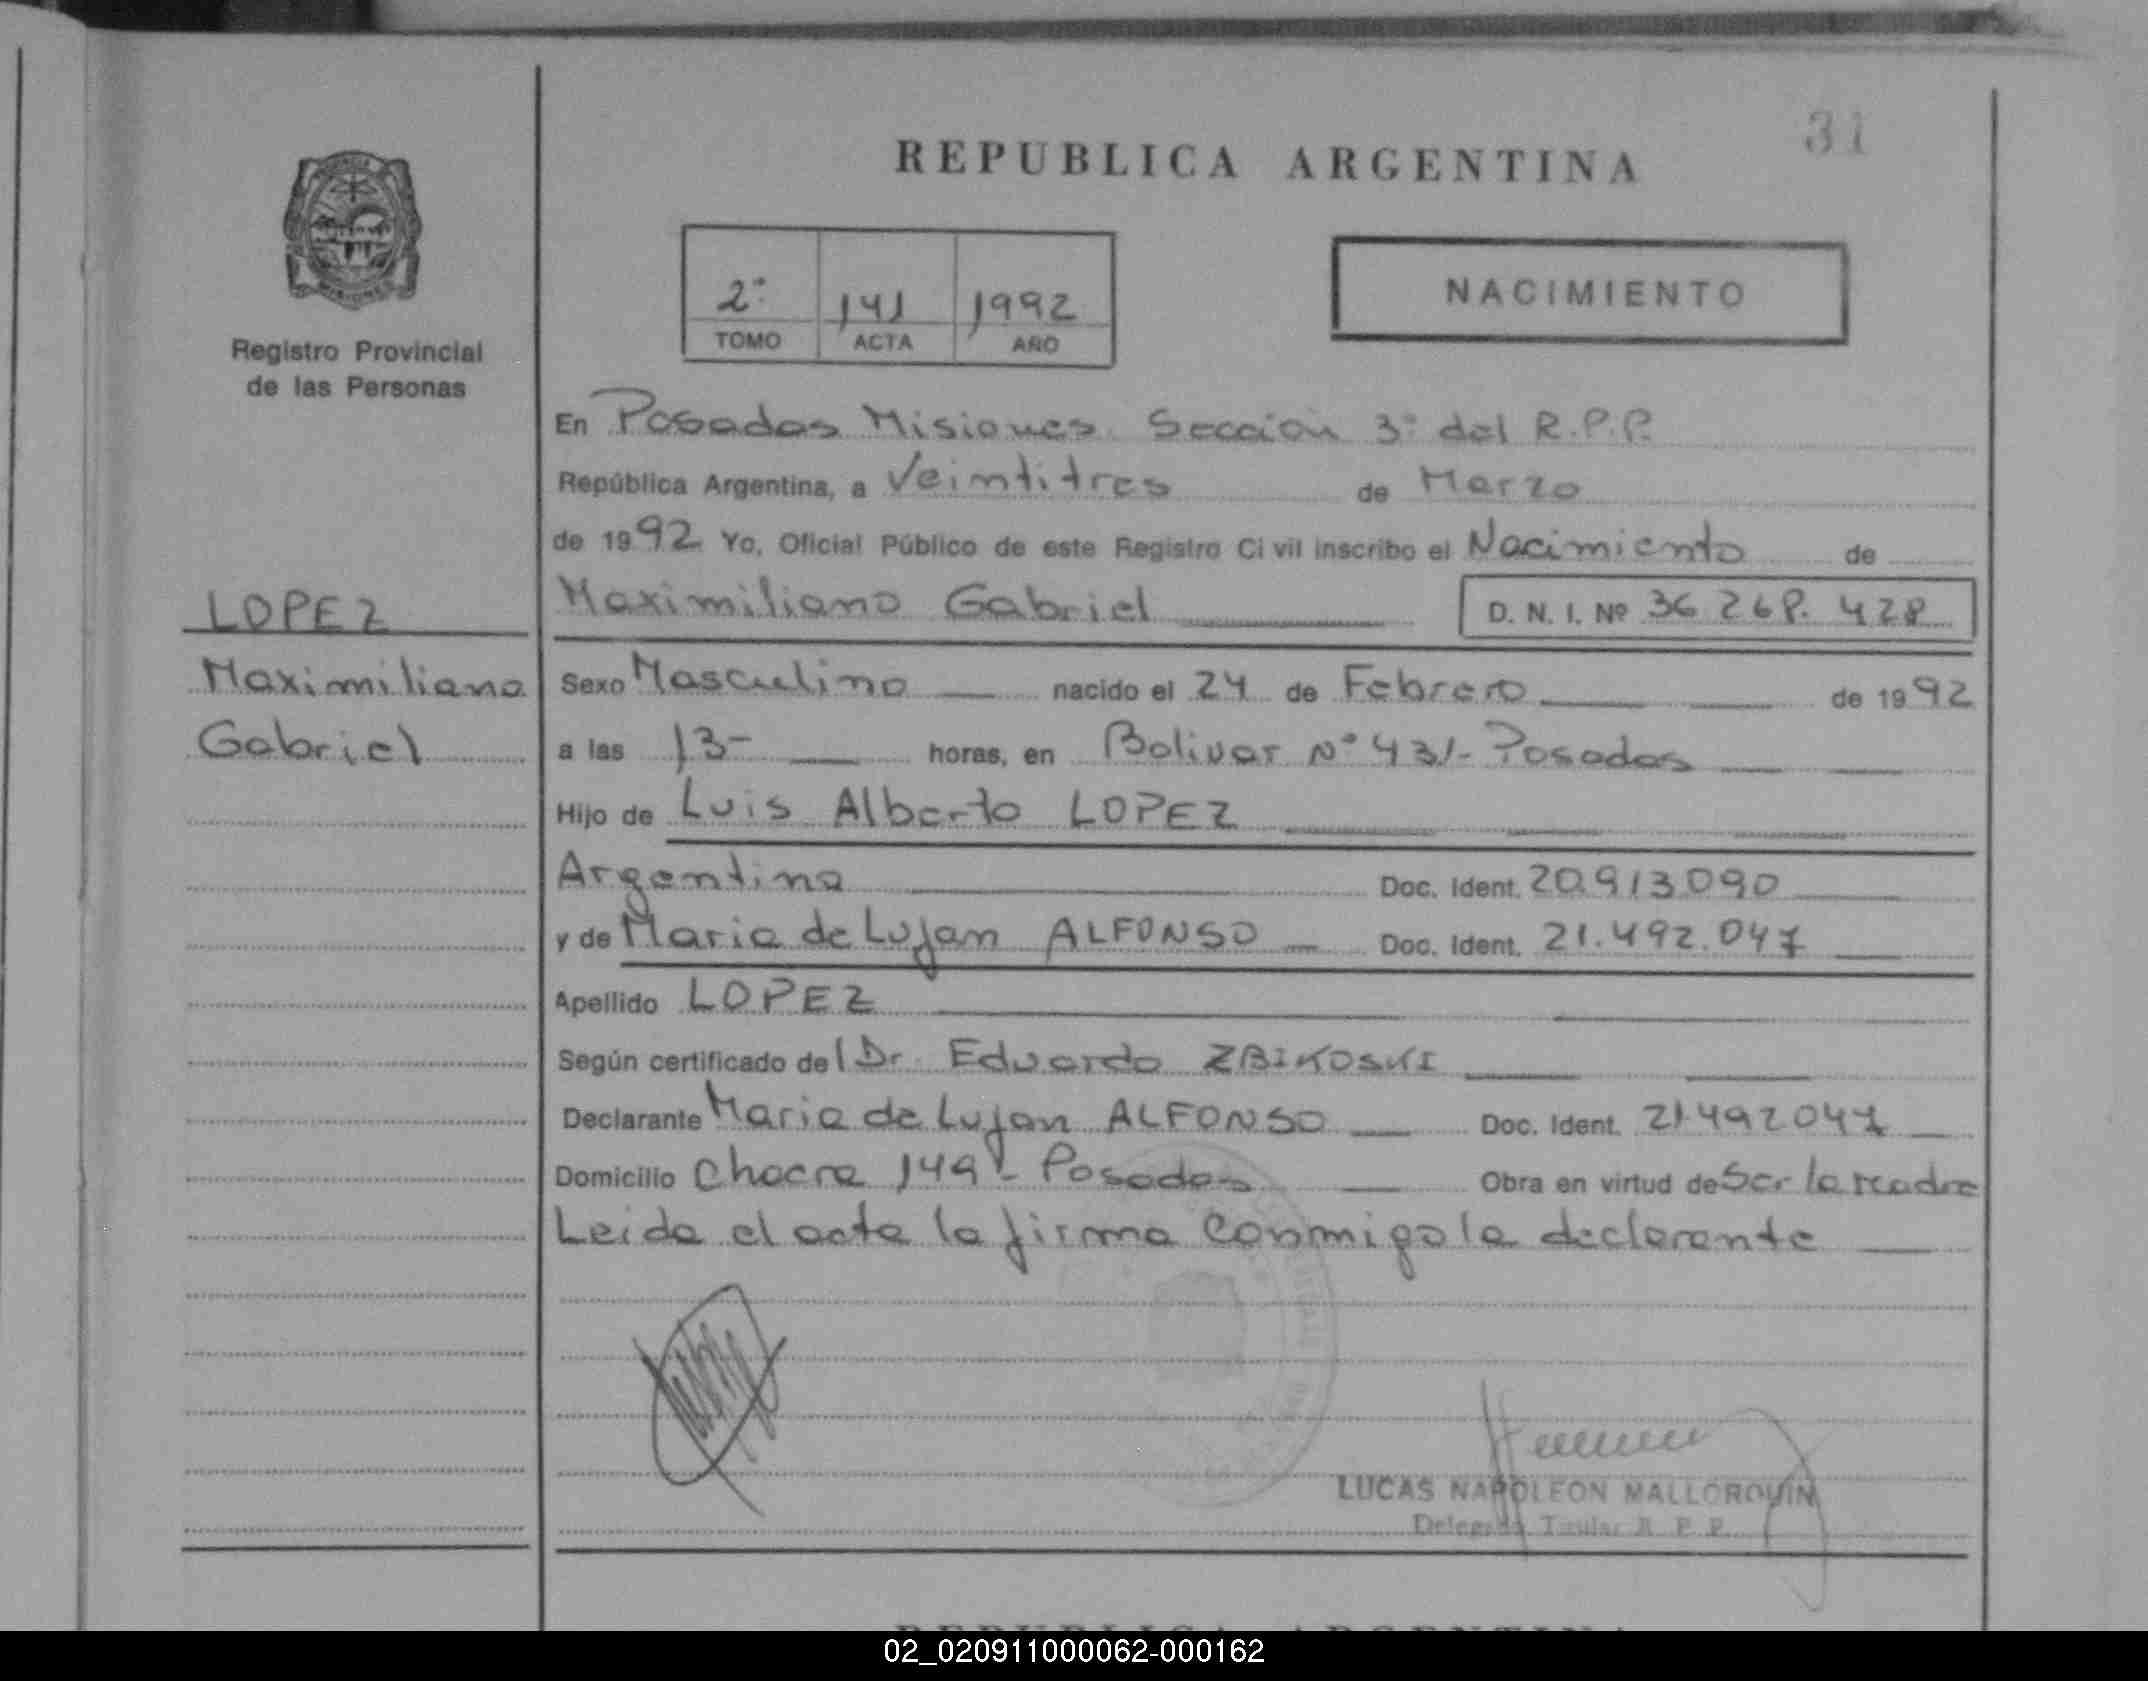 31
REPUBLICA ARGENTINA
2º 141 1992
TOMO ACTA AÑO
NACIMIENTO
Registro Provincial
de las Personas
En Posadas Misiones Sección 3º del R.P.P.
República Argentina, a Veintitres de Marzo
de 1992 Yo, Oficial Público de este Registro Ci vil inscribo el Nacimiento de
Maximiliano Gabriel D. N. I. Nº 36.268.428
LOPEZ
Maximiliano
Gabriel
Sexo Masculino nacido el 24 de Febrero de 1992
a las 13- horas, en Bolivar Nº 431- Posadas
Hijo de Luis Alberto LOPEZ
Argentina Doc. Ident. 20.913.090
y de Maria de Lujan ALFONSO Doc. Ident. 21.492.047
Apellido LOPEZ
Según certificado del Dr. Eduardo ZBIKOSKI
Declarante Maria de Lujan ALFONSO Doc. Ident. 21492047
Domicilio Chacra 149- Posadas Obra en virtud de Ser la madre
Leida el acta la firma conmigo la declarante
LUCAS NAPOLEON MALLORQUIN
Delegado Titular R. P. P.
REPUBLICA ARGENTINA
02_020911000062-000162